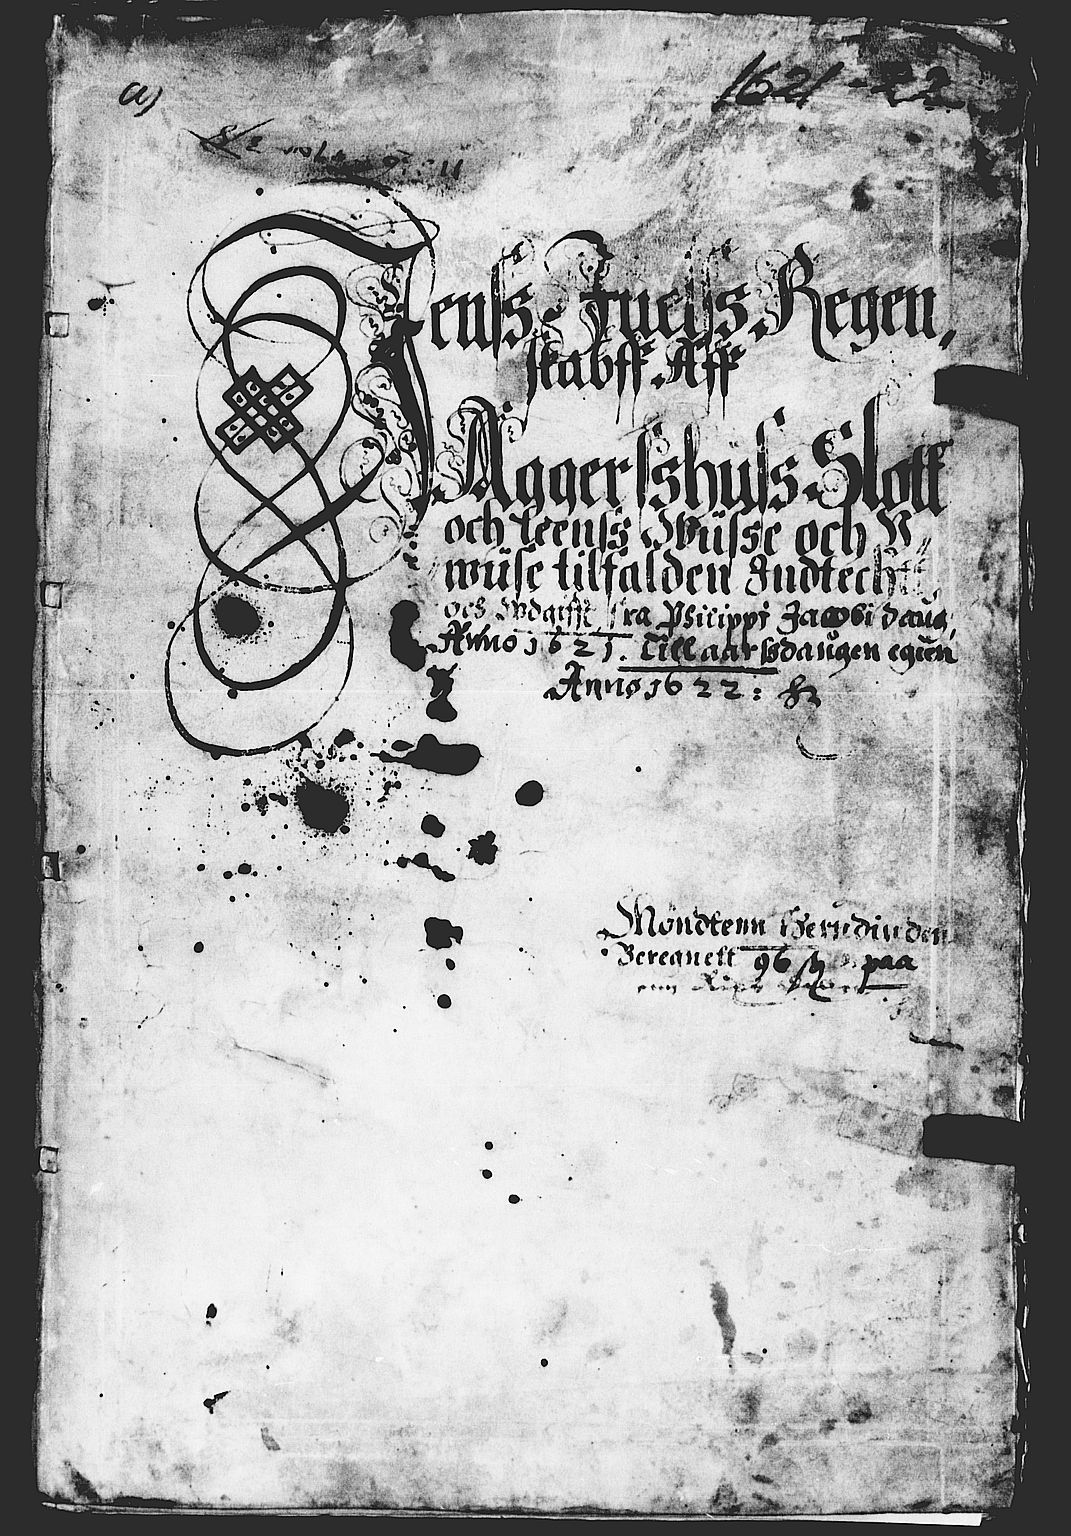 a)
1621-22
Jenss Juelss Regen,
skabff. Aff
Aggersshuss Slott
och Leenss Wüsse och V
wüse tilfalden Indtecht
och Wdgifft fra Philippi Jacobi daug,
Anno 1621. Till aarssdaugen egien
Anno 1622:
Möndtenn Herudinden
Beregnett 96 ß paa